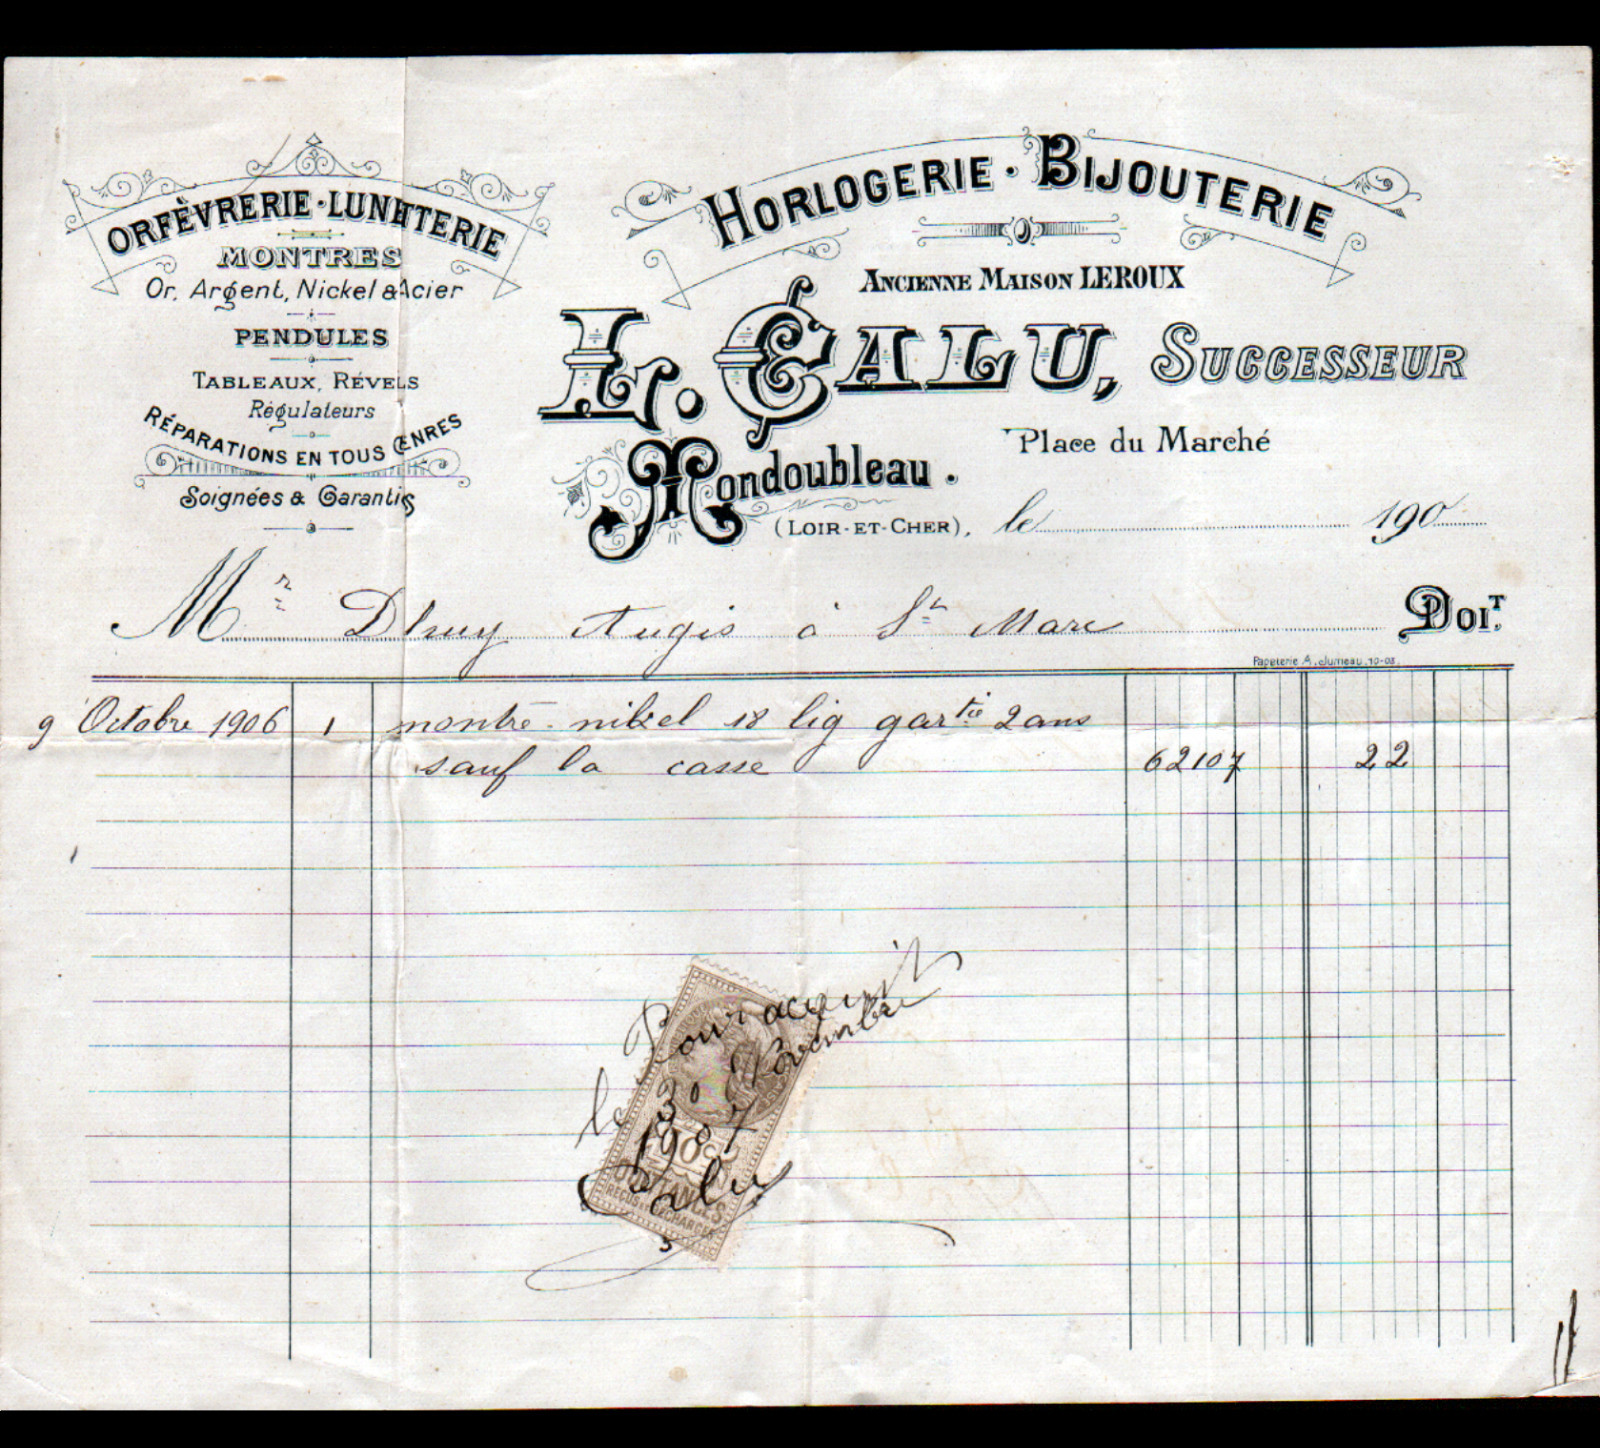 ORFÈVRERIE · LUNETTERIE
MONTRES
Or, Argent, Nickel & Acier
PENDULES
TABLEAUX, RÉVEILS
Régulateurs
RÉPARATIONS EN TOUS GENRES
Soignées & Garanties
HORLOGERIE · BIJOUTERIE
ANCIENNE MAISON LEROUX
L. CALU, SUCCESSEUR
Place du Marché
Mondoubleau.
(LOIR-ET-CHER), le 190
Mr Dhuy Augis à St Marc DOIT.
Papeterie A. Jumeau. 10-03.
9 Octobre 1906 1 montre nikel 18 lig gartie 2 ans
sauf la casse 62107 22
Pour acquit
le 30 Novembre
1907
Calu
QUITTANCES
REÇUS ET DÉCHARGES